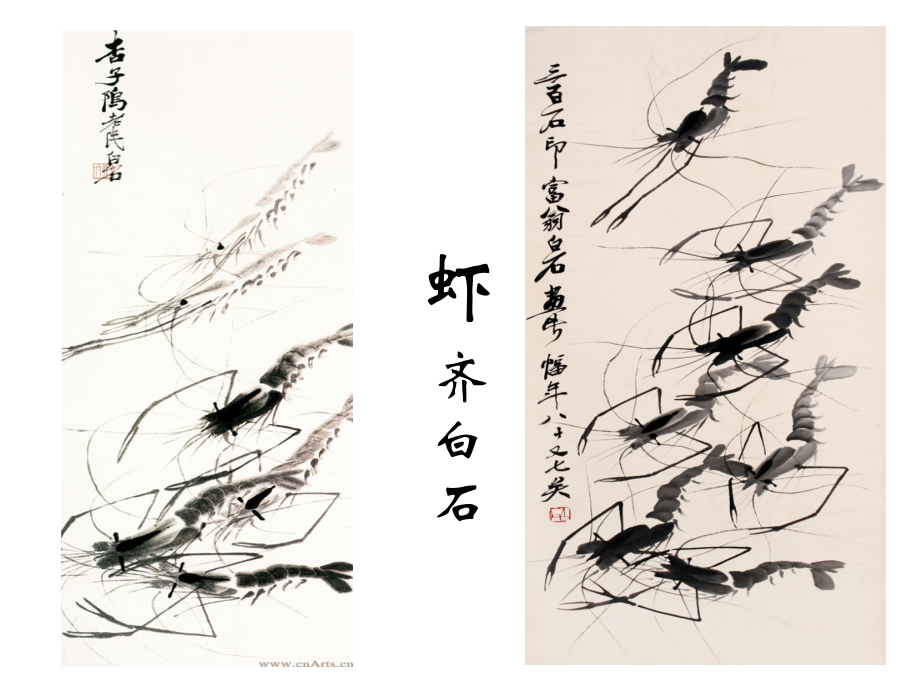 杏子隖老民白石
虾
齐白石
三百石印富翁白石画此幅年八十又七矣
www.cnArts.cn